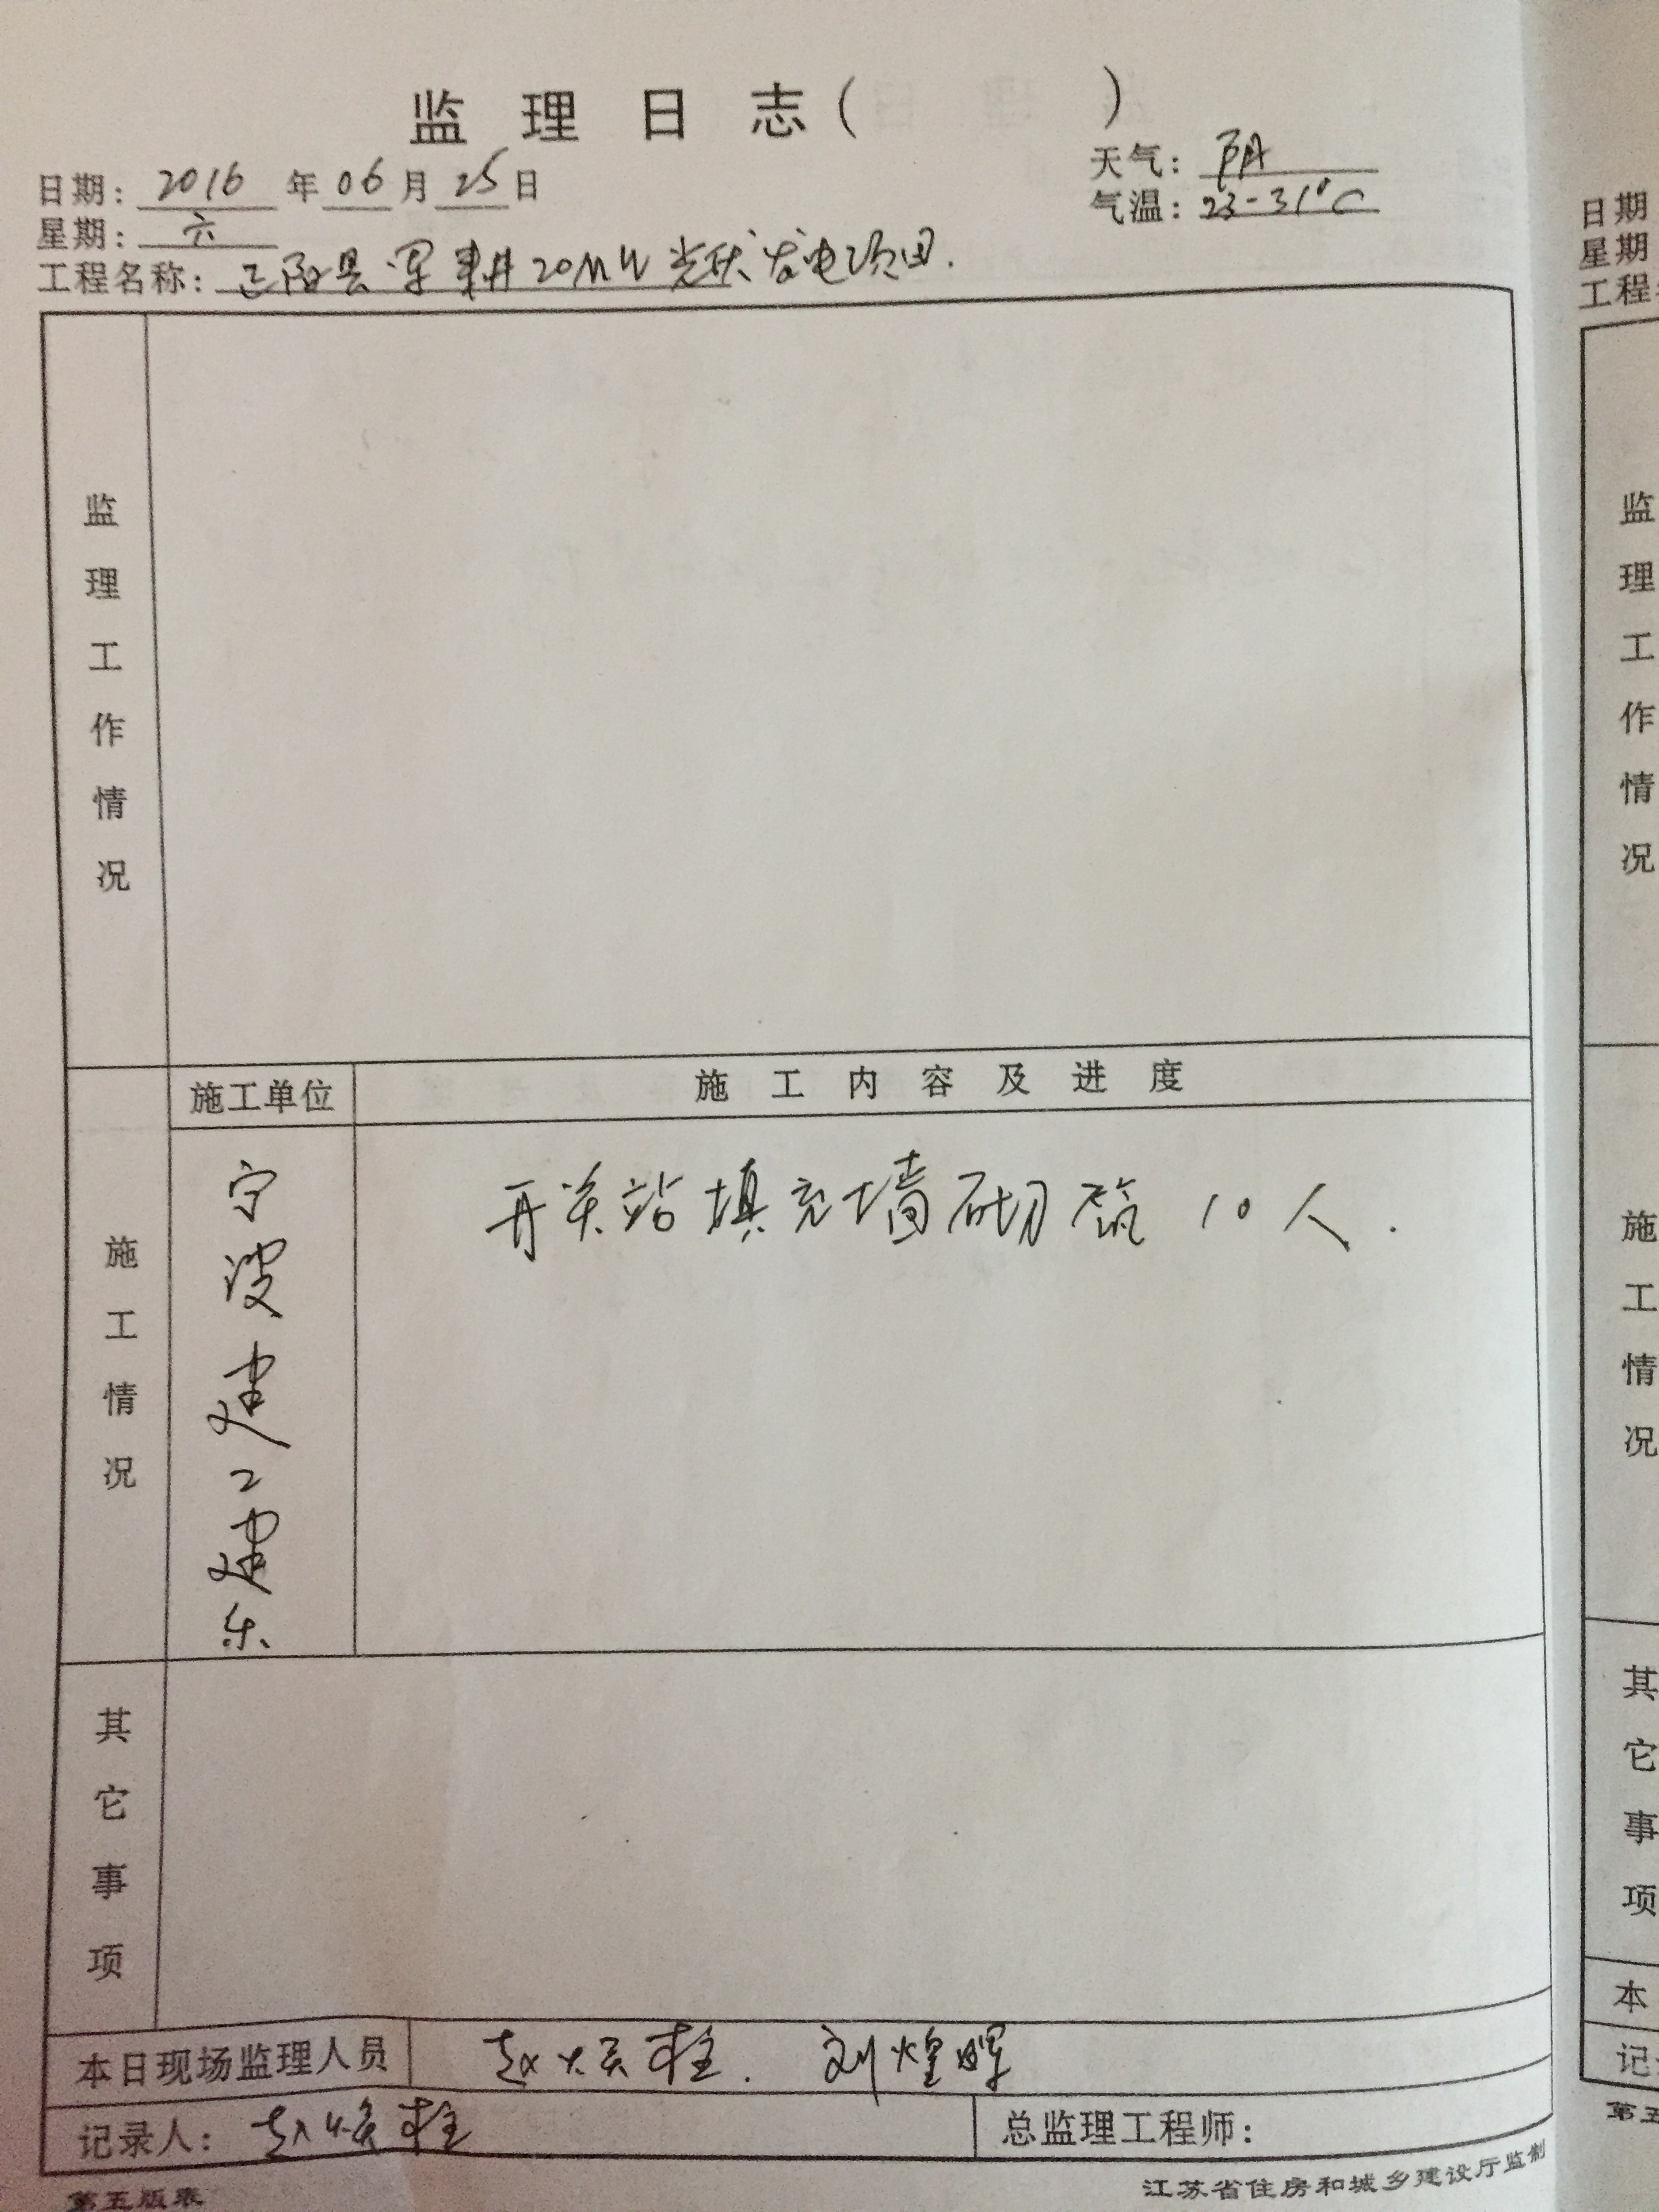 监理日志( )
日期: 2016 年 06 月 25 日 天气: 阴
星期: 六 气温: 23-31℃
工程名称: 正阳县军耕20MW光伏发电项目.
监理工作情况
施工单位 施工内容及进度
施工情况
宁波建工建乐
开关站填充墙砌筑 10人.
其它事项
本日现场监理人员 赵焕柱. 刘煌晖
记录人: 赵焕柱 总监理工程师:
第五版表 江苏省住房和城乡建设厅监制
日期
星期
工程
监理工作情况
施工情况
其它事项
本
记
第五